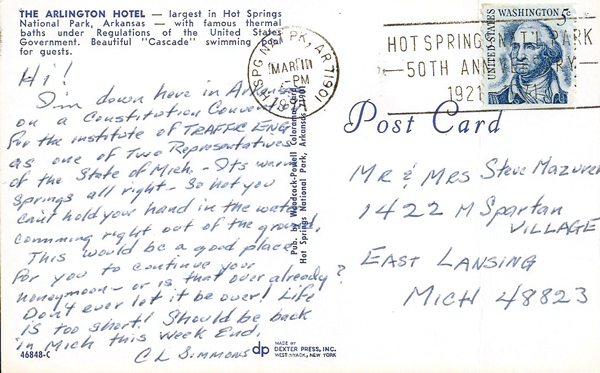 THE ARLINGTON HOTEL — largest in Hot Springs
National Park, Arkansas — with famous thermal
baths under Regulations of the United States
Government. Beautiful "Cascade" swimming pool
for guests.
Hi!
I'm down here in Arkansas
on a Constitution Convention
For the institute of TRAFFIC ENG.
as one of Two Representatives
of the State of Mich. - Its warm
springs all right - So hot you
can't hold your hand in the water
comming right out of the ground.
This would be a good place
For you to continue your
honeymoon - or is that over already?
Don't ever let it be over! Life
is too short! Should be back
in Mich this Week End.
CL SIMMONS
46848-C
dp
MADE BY
DEXTER PRESS, INC.
WEST NYACK, NEW YORK
Pub. by Woodcock-Powell Color
Hot Springs National Park, Arkansas 71901
PK, AR 71901
MAR
PM
HOT SPRING PARK
50TH
1921
UNITED STATES
WASHINGTON 5c
Post Card
MR & MRS Steve Mazure
1422 M Spartan
VILLAGE
EAST LANSING
MICH 48823